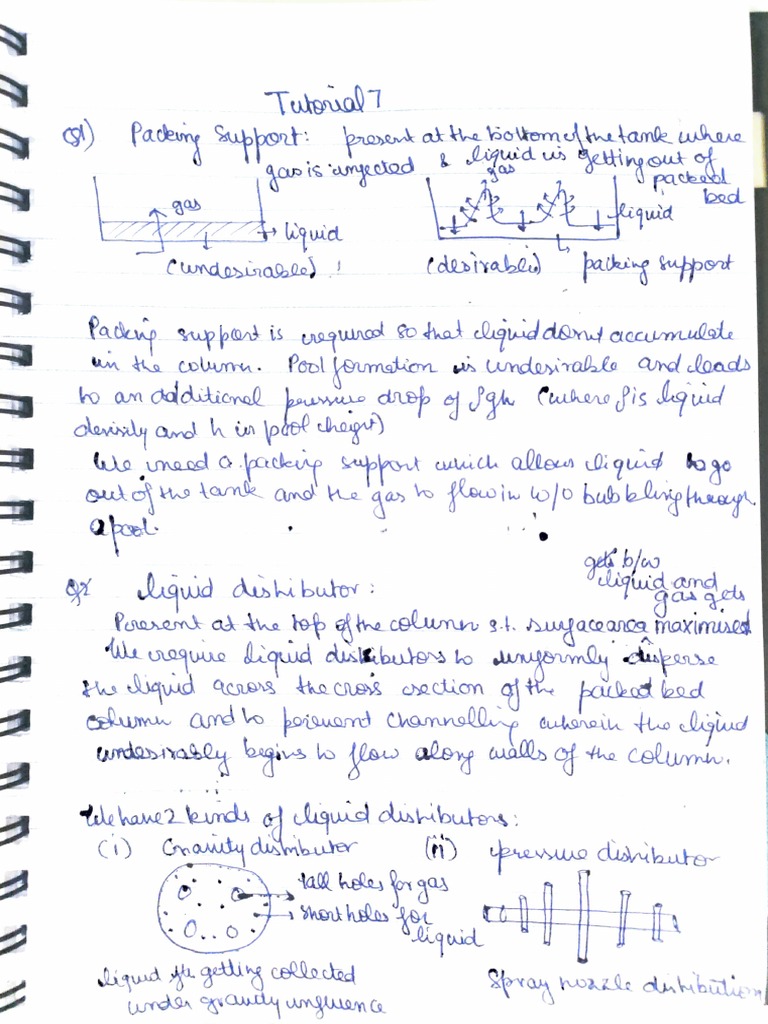 Tutorial 7
Q1) Packing Support: present at the bottom of the tank where
gas is injected & liquid is getting out of
packed
bed
gas
liquid
(undesirable)
gas
liquid
(desirable)
packing support
Packing support is required so that liquid donut accumulate
in the column. Pool formation is undesirable and leads
to an additional pressure drop of ρgh (where ρ is liquid
density and h is pool height)
We need a packing support which allows liquid to go
out of the tank and the gas to flow in w/o bubbling through
a pool.
Q2 liquid distributor:
gets b/w
liquid and
gas gets
Present at the top of the column s.t. surface area maximised
We require liquid distributors to uniformly disperse
the liquid across the cross section of the packed bed
column and to prevent channelling wherein the liquid
undesirably begins to flow along walls of the column.
We have 2 kinds of liquid distributors:
(i) Gravity distributor
(ii) pressure distributor
tall holes for gas
short holes for
liquid
liquid getting collected
under gravity
Spray nozzle distribution